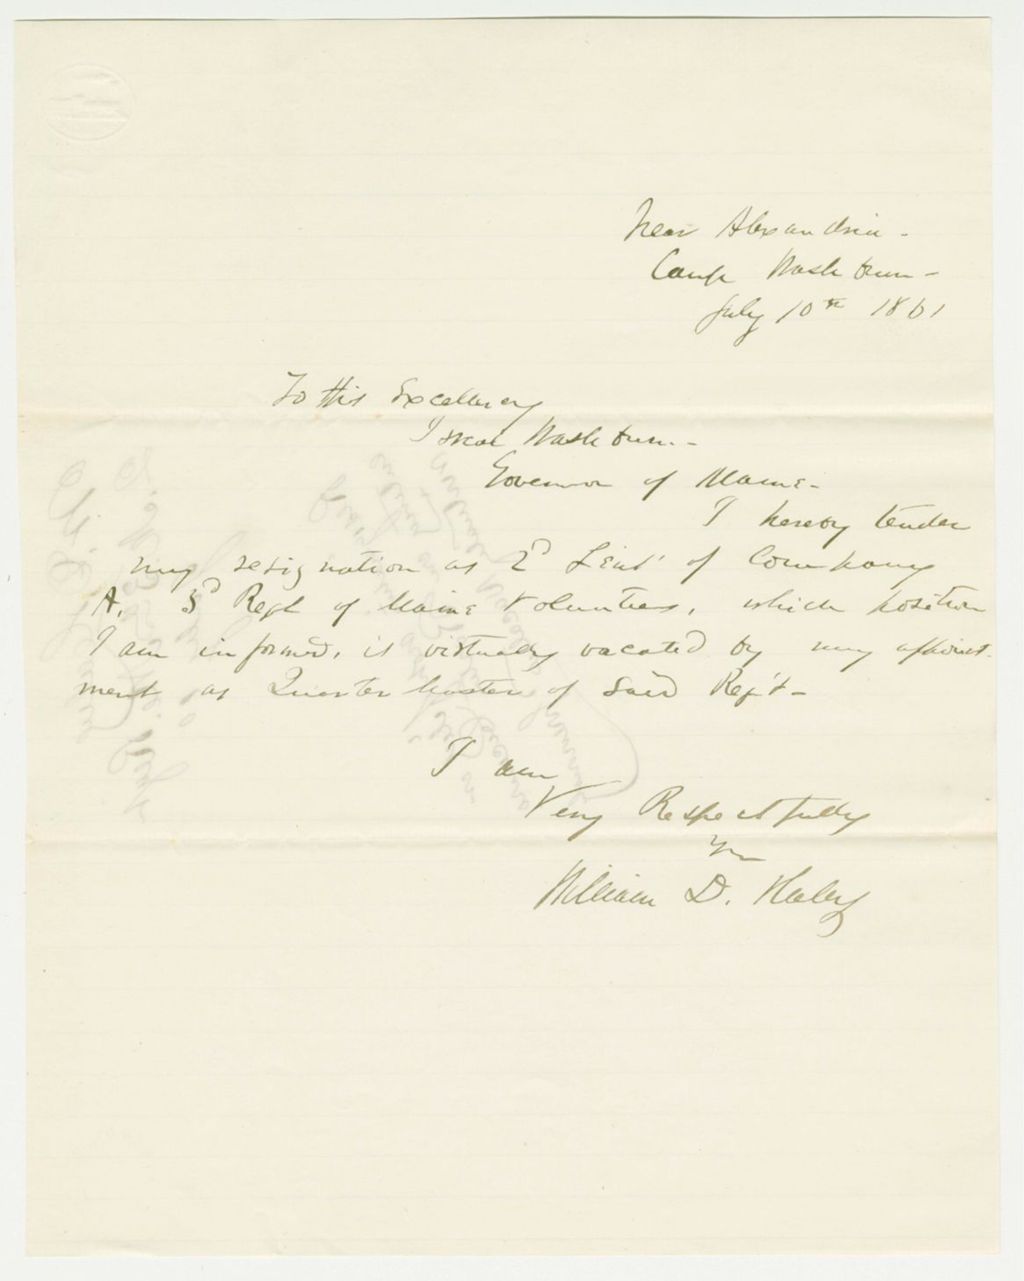 Near Alexandria -
Camp Washburn -
July 10th 1861
To His Excellency
Israel Washburn -
Governor of Maine -
I hereby tender
my resignation as 2d Lieut of Company
A, 3d Regt of Maine Volunteers, which position
I am informed, is virtually vacated by my appoint-
ment as Quarter Master of said Reg't -
I am
Very Respectfully
Yrs
William D. Haley